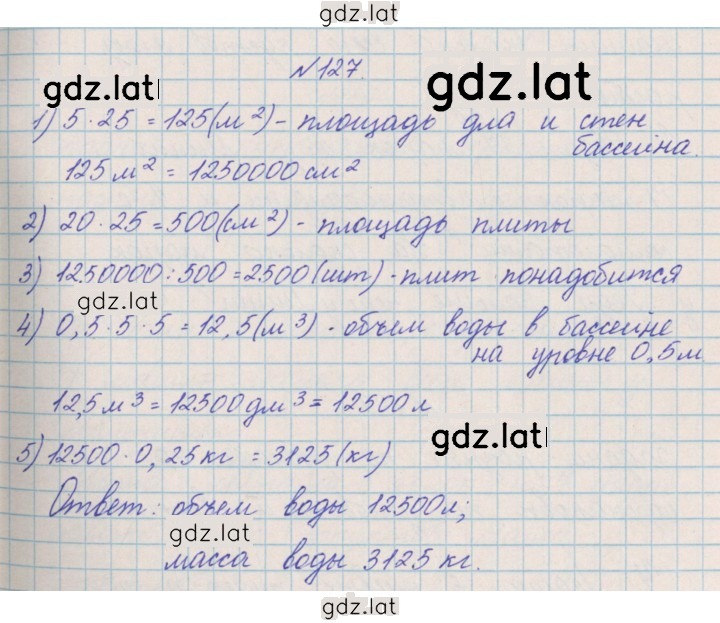 gdz.lat
№127.
gdz.lat gdz.lat
1) 5 · 25 = 125(м²) - площадь дла и стен
бассейна.
125 м² = 1250000 см²
2) 20 · 25 = 500(см²) - площадь плиты
3) 1250000 : 500 = 2500(шт) - плит понадобится
gdz.lat
4) 0,5 · 5 · 5 = 12,5(м³) - объем воды в бассейне
на уровне 0,5м.
12,5м³ = 12500дм³ = 12500л
gdz.lat
5) 12500 · 0,25кг = 3125(кг)
Ответ: объем воды 12500л;
gdz.lat
масса воды 3125 кг.
gdz.lat